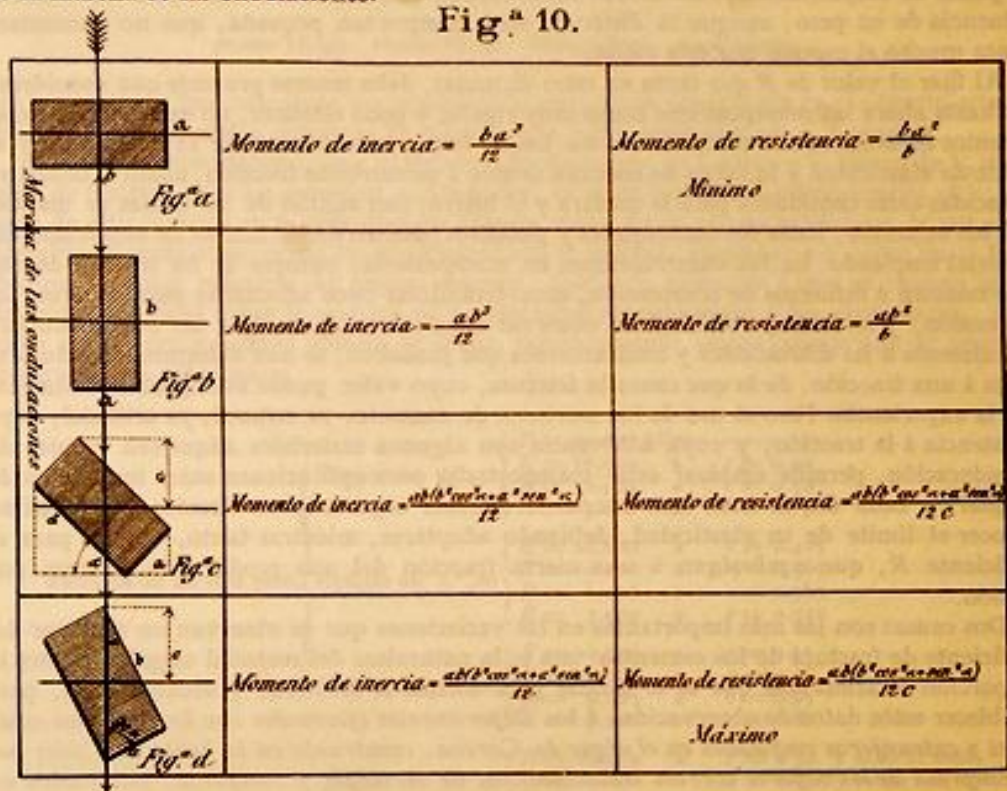 Fig.ª 10.
Marcha de las ondulaciones
a
b
Fig.ª a
Momento de inercia = ba³/12
Momento de resistencia = ba²/6
Mínimo
b
a
Fig.ª b
Momento de inercia = ab³/12
Momento de resistencia = ab²/6
c
Fig.ª c
Momento de inercia = ab(b²cos²α+a²sen²α)/12
Momento de resistencia = ab(b²cos²α+a²sen²α)/12 C
b
c
Fig.ª d
Momento de inercia = ab(b²cos²α+a²sen²α)/12
Momento de resistencia = ab(b²cos²α+sen²α)/12 C
Máximo